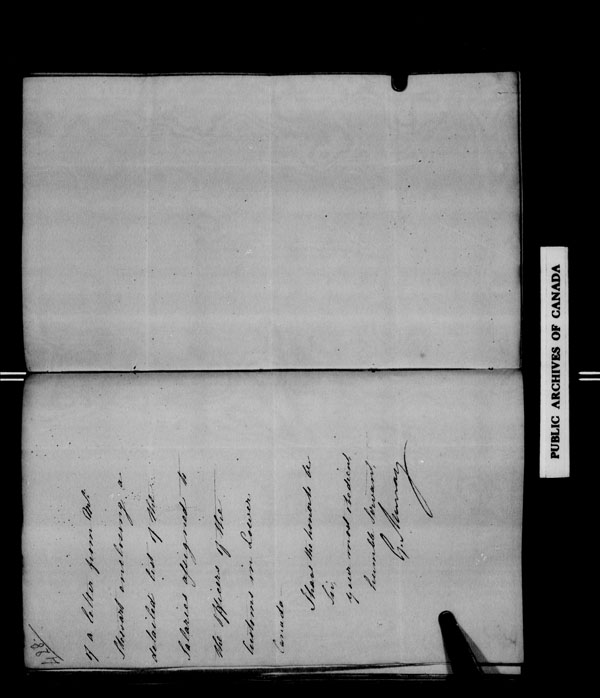 of a letter from Mr.
Stewart enclosing a
detailed list of the
Salaries assigned to
the Officers of the
Customs in Lower
Canada
I have the honor to be
Sir
your most obedient
humble Servant
G. Murray
PUBLIC ARCHIVES OF CANADA